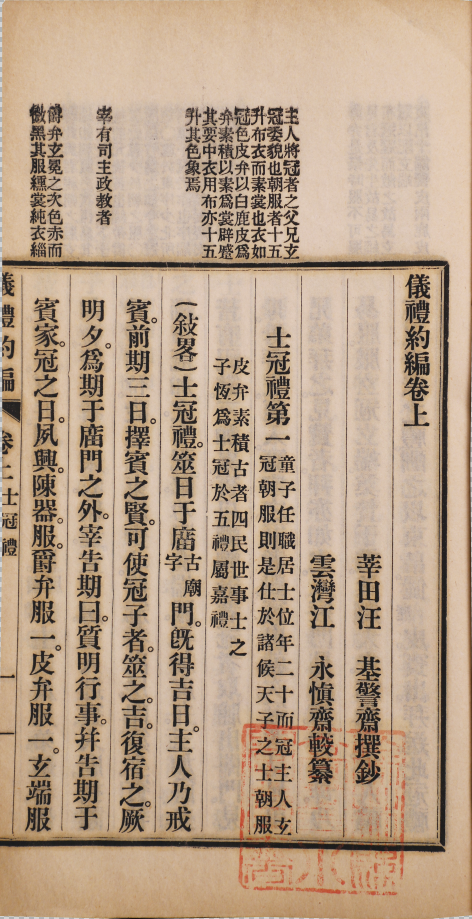 主人將冠者之父兄玄
冠委貌也朝服者十五
升布衣而素裳也衣如
冠色皮弁以白鹿皮爲
弁素積以素爲裳辟蹙
其要中衣用布亦十五
升其色象焉
宰有司主政教者
爵弁玄冕之次色赤而
微黑其服纁裳純衣緇
儀禮約編卷上
莘田汪　基警齋撰鈔
雲灣江　永慎齋較纂
士冠禮第一
童子任職居士位年二十而冠主人玄
冠朝服則是仕於諸侯天子之士朝服
皮弁素積古者四民世事士之
子恆爲士冠於五禮屬嘉禮
(敍畧)士冠禮。筮日于廟古廟字門。旣得吉日。主人乃戒
賓。前期三日。擇賓之賢可使冠子者。筮之。吉。復宿之。厥
明夕。爲期于廟門之外。宰告期曰。質明行事。幷告期于
賓家。冠之日。夙興。陳器。服。爵弁服一。皮弁服一。玄端服
儀禮約編　卷上　士冠禮　一